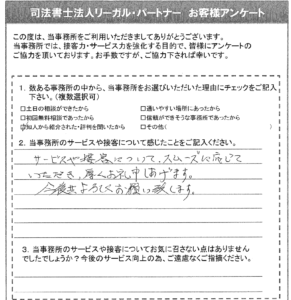 司法書士法人リーガル・パートナー お客様アンケート
この度は、当事務所をご利用いただきましてありがとうございます。
当事務所では、接客力・サービス力を強化する目的で、皆様にアンケートの
ご協力を頂いております。お手数ですが、ご協力下されば幸いです。
1. 数ある事務所の中から、当事務所をお選びいただいた理由にチェックをご記入
下さい。(複数選択可)
□土日の相談ができたから □通いやすい場所にあったから
□初回無料相談であったから □信頼ができそうな事務所であったから
知人から紹介された・評判を聞いたから □その他(
2. 当事務所のサービスや接客について感じたことをご記入ください。
サービスや接客について、スムーズに応じて
いただき、厚くお礼申しあげます。
今後共よろしくお願い致します。
3. 当事務所のサービスや接客についてお気に召さない点はありません
でしたでしょうか?今後のサービス向上の為、ご遠慮なくご指摘ください。